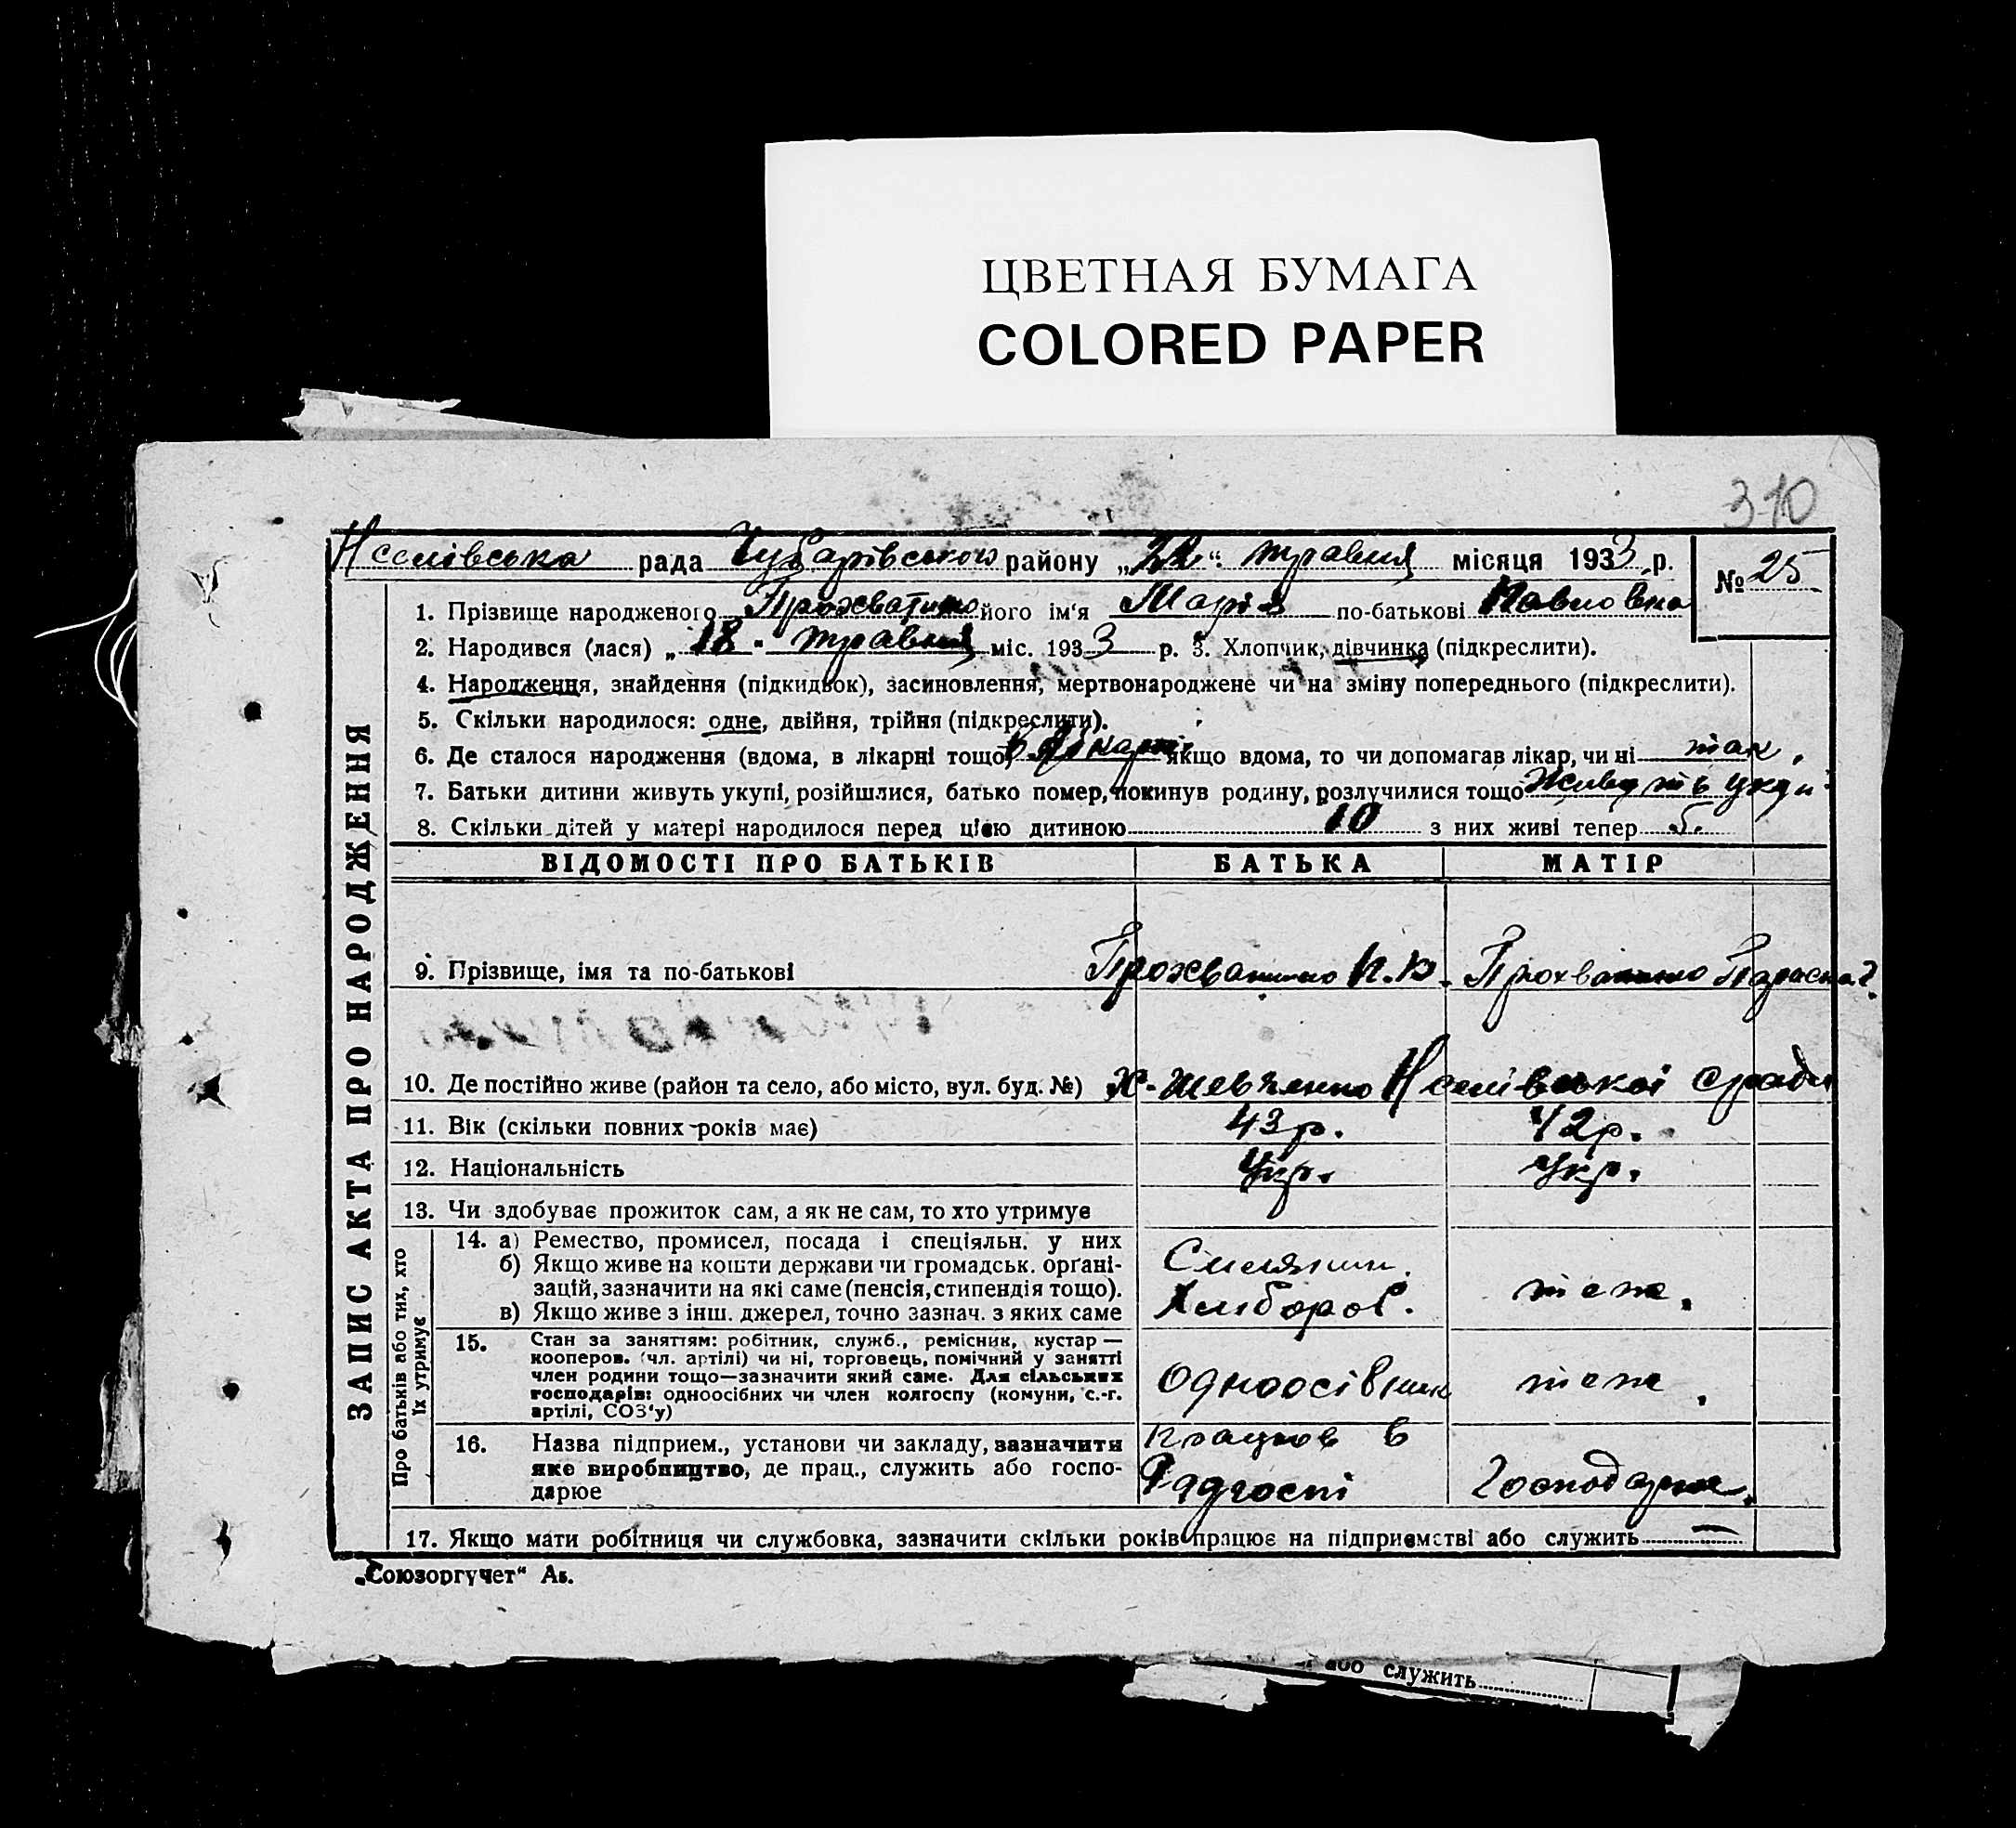 ЦВЕТНАЯ БУМАГА
COLORED PAPER
310
рада Чубарівського району „22“ травня місяця 1933 р.
№ 25
1. Прізвище народженого Прохватило його ім‘я Марія по-батькові Павловна
2. Народився (лася) „18“ травня міс. 1933 р. 3. Хлопчик, дівчинка (підкреслити).
4. Народження, знайдення (підкидьок), засиновлення, мертвонароджене чи на зміну попереднього (підкреслити).
5. Скільки народилося: одне, двійня, трійня (підкреслити).
6. Де сталося народження (вдома, в лікарні тощо) в лікарні якщо вдома, то чи допомагав лікар, чи ні так.
7. Батьки дитини живуть укупі, розійшлися, батько помер, покинув родину, розлучилися тощо Живуть укупі
8. Скільки дітей у матері народилося перед цією дитиною 10 з них живі тепер 5.
ВІДОМОСТІ ПРО БАТЬКІВ БАТЬКА МАТІР
9. Прізвище, імя та по-батькові Прохватило П.К. Прохватило Параска
10. Де постійно живе (район та село, або місто, вул. буд. №) Х-Шевченко с/ради
11. Вік (скільки повних років має) 43 р. 42 р.
12. Національність Укр. Укр.
13. Чи здобуває прожиток сам, а як не сам, то хто утримує
14. а) Ремество, промисел, посада і спеціяльн. у них
б) Якщо живе на кошти держави чи громадськ. орґані-
зацій, зазначити на які саме (пенсія, стипендія тощо).
в) Якщо живе з інш. джерел, точно зазнач. з яких саме
Селянин.
Хлібороб.
теж.
15. Стан за заняттям: робітник, служб., ремісник, кустар —
кооперов. (чл. артілі) чи ні, торговець, помічний у занятті
член родини тощо—зазначити який саме. Для сільських
господарів: одноосібних чи член колгоспу (комуни, с.-г.
артілі, СОЗ‘у)
одноосівник теж.
16. Назва підприєм., установи чи закладу, зазначити
яке виробництво, де прац., служить або госпо-
дарює
працює в
Радгоспі
Господарює.
17. Якщо мати робітниця чи службовка, зазначити скільки років працює на підприємстві або служить —
ЗАПИС АКТА ПРО НАРОДЖЕННЯ
Про батьків або тих, хто
їх утримує
„Союзоргучет“ Ав.
або служить